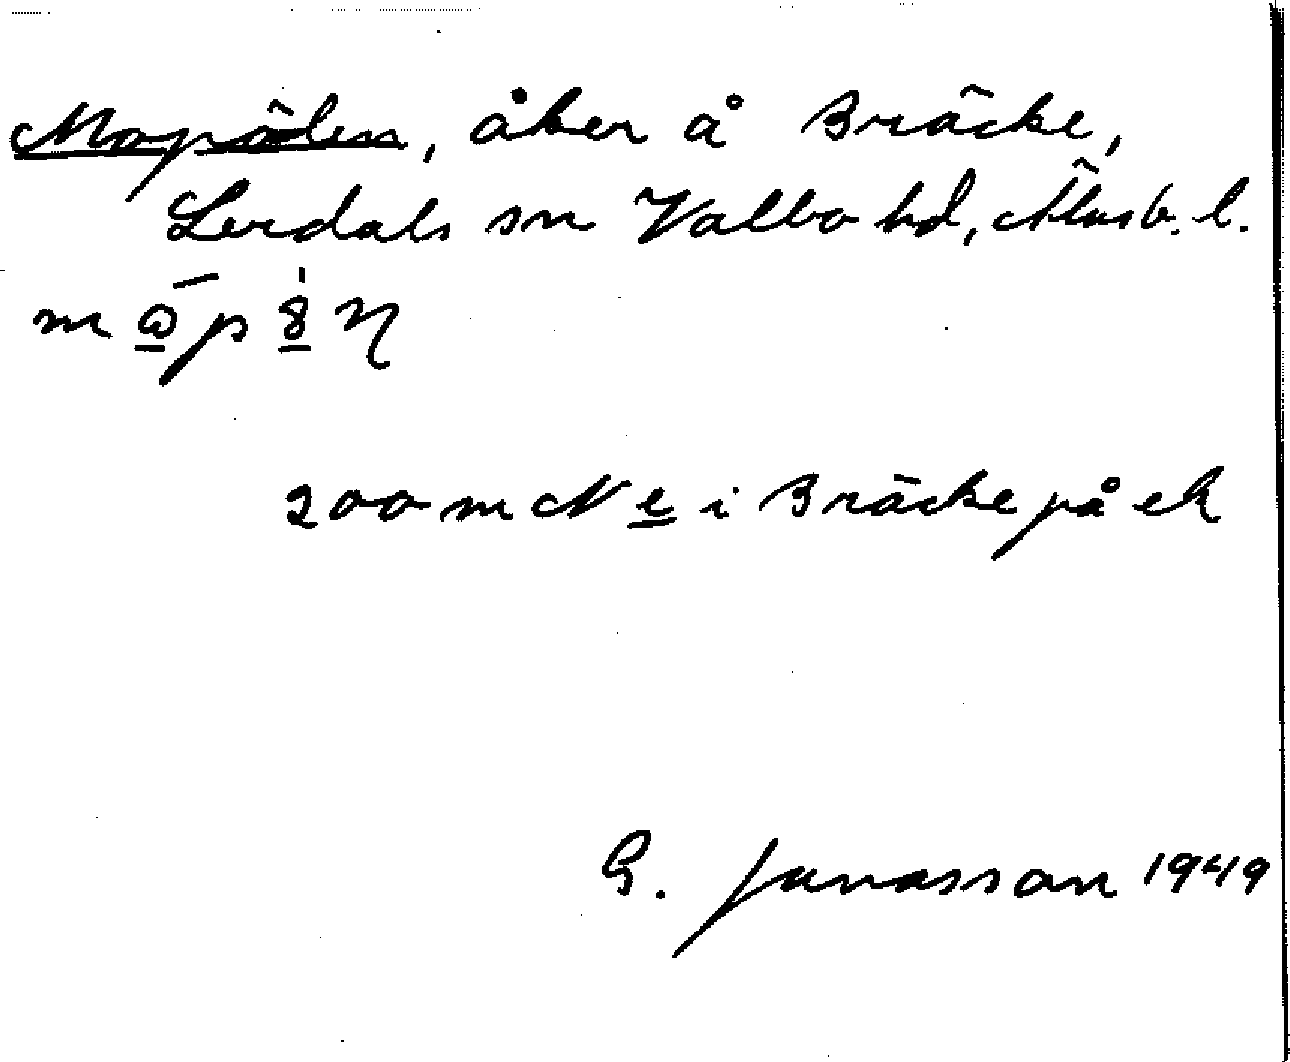 Mopölen, åker å Bräcke,
Lerdals sn Valbo hd, Älvsb. l.
200 m N e i Bräcke på ek
G. Jonasson 1949